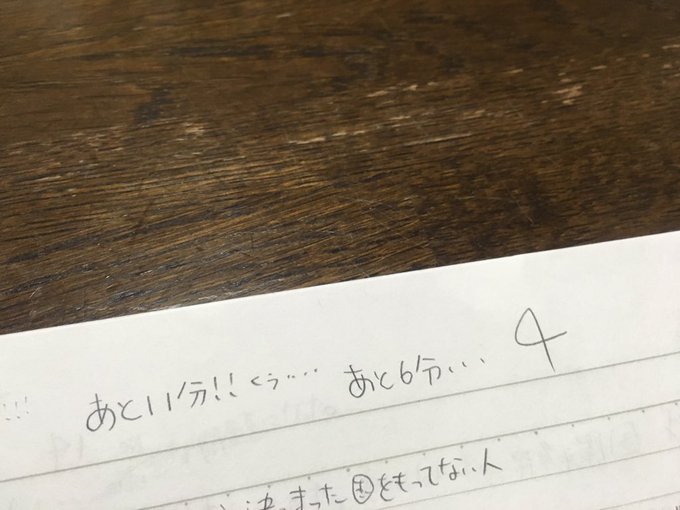 !!! あと11分!! くぅ…. あと6分... 4
決まった㊍をもってない人